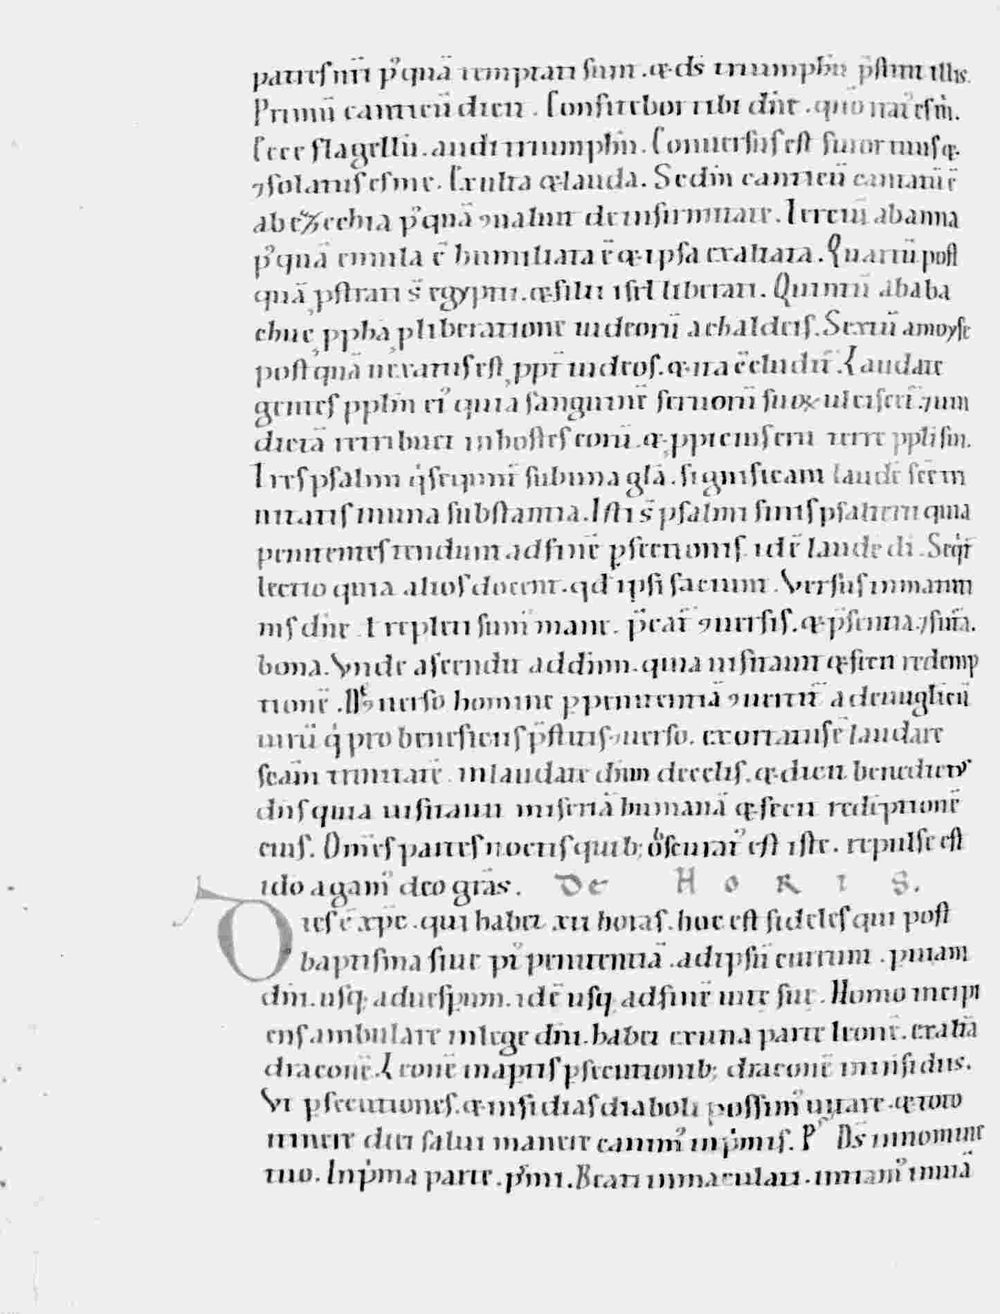 patres nr̄i p'quā temptati sunt . & d̄s triumphū p̄stitit illis.
Primū canticū dicit . Confitebor tibi dn̄e . qūo iratꝰ es m̄.
Ecce flagellū . audi triumphū . Conuersus est furor tuus &
⁊solatus es me . Exulta & lauda . Sedm̄ canticū cantatū ē
ab ezechia p'quā ꝯualuit de infirmitate . Terciū ab anna
p'quā emula ē humiliata ē & ipsa exaltata . Quartū post
quā ꝓstrati s̄ egyptii . & filii isrł liberati . Quintū ab aba
chuc ꝓpha ꝓ liberatione iudeorū a chaldeis . Sextū a moyse
post quā uexatus est ꝓpt̄ iudeos . & uia
gentes ppłm eiꝰ quia sanguinē seruorū suoꝝ ulciscet̄ . ⁊uin
dictā retribuet in hostes eorū . & ꝓpicius erit terre ppli sui.
Tres psalmi q̇ secunt̄ sub una gła . significant laudē sc̄e tri
nitatis in una substantia . Isti s̄ psalmi finis psalterii quia
penitentes tendunt ad finē ꝑfectionis . idē laudē di . Seq̇t̄
lectio quia alios docent . qd ipsi faciunt . Versus in matuti
nis dn̄e . ł repleti sumꝰ mane .
bona . Vnde ascendit additur . quia uisitauit & fecit redemp
tionē . uerso homine ꝑ penitentiā ꝯuertit̄ ad euuglicū
uirū q̇ pro beneficiis p̄stitis ꝯuerso . exortatus ē laudare
sc̄am trinitatē . in laudate dn̄m de celis . & dicit benedictꝰ
dn̄s quia uisitauit miseriā humanā & fecit redēptionē
eius . Om̄es partes noctis quibꝫ obscuratꝰ est iste . repulse est
ido agamꝰ deo grās . De HORIS .
Dies ē xpc . qui habet xii horas . hoc est fideles qui post
baptisma siue pꝰ penitentiā . adipsū currunt . ꝑ uiam
dn̄i . usqꝫ ad uesꝑum . idē usqꝫ ad finē uite sue . Homo incipi
ens ambulare in lege dn̄i . habet ex una parte leonē . ex alia
draconē . Leonē in aptis ꝑsecutionibꝫ draconē in insidiis.
Vt ꝑsecutiones . & insidias diaboli possimꝰ uitare . & toto
itinere diei salui manere canimꝰ in ṗmis . Pˢ D̄s in nomine
tuo . In ṗma parte . ṗmi . Beati inmaculati . intramꝰ in uiā